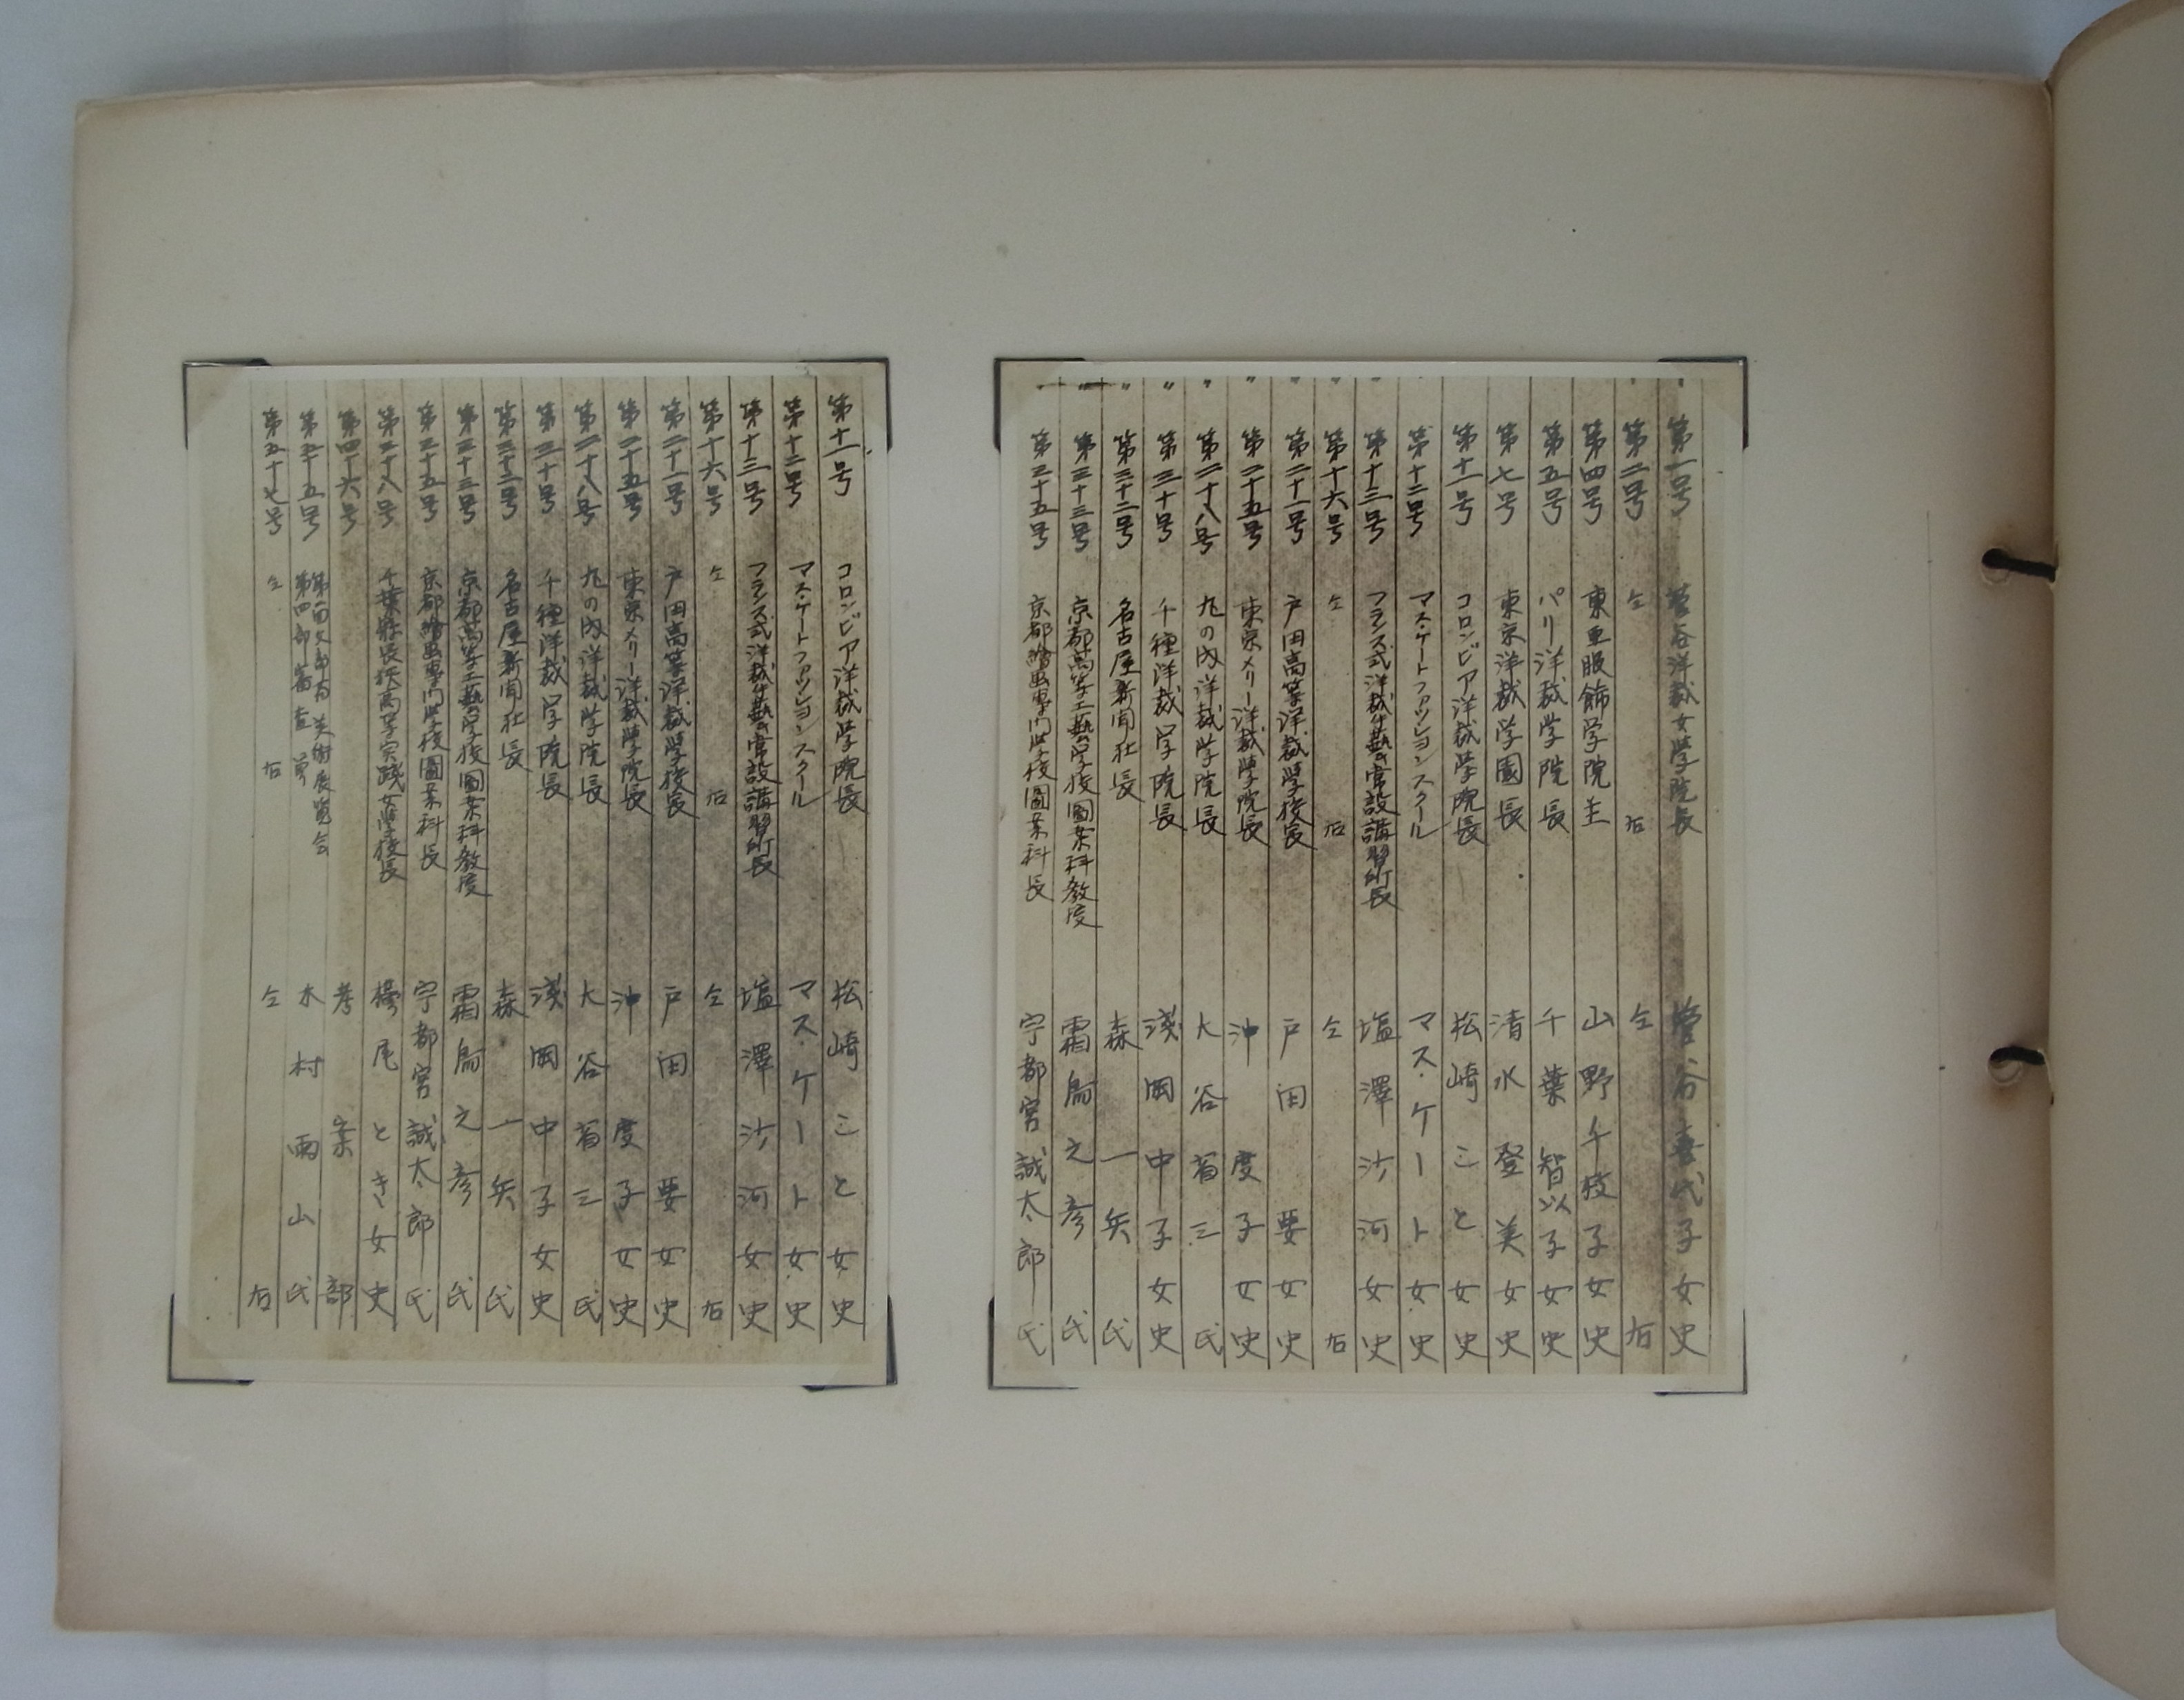 第一号 菅谷洋裁女学院長 菅谷喜代子女史
第二号 仝右 仝右
第四号 東亜服飾学院主 山野千枝子女史
第五号 パリ洋裁学院長 千葉智以子女史
第七号 東京洋裁学園長 清水登美女史
第十一号 コロンビア洋裁学院長 松崎ミと女史
第十二号 マス・ケートファッションスクール マス・ケート女史
第十三号 フランス式洋裁手藝常設講習所長 塩澤沙河女史
第十六号 仝右 仝右
第二十一号 戸田高等洋裁學校長 戸田要女史
第二十五号 東京メリー洋裁學院長 沖度子女史
第二十八号 丸の内洋裁学院長 大谷省三氏
第三十号 千種洋裁学院長 淺岡中子女史
第三十二号 名古屋新聞社長 森一兵氏
第三十三号 京都高等工藝学校圖案科教授 霜鳥之彦氏
第三十五号 京都繪画専门学校圖案科長 宇都宮誠太郎氏
第十一号 コロンビア洋裁学院長 松崎ミと女史
第十二号 マス・ケートファッションスクール マス・ケート女史
第十三号 フランス式洋裁手藝常設講習所長 塩澤沙河女史
第十六号 仝右 仝右
第二十一号 戸田高等洋裁學校長 戸田要女史
第二十五号 東京メリー洋裁學院長 沖度子女史
第二十八号 丸の内洋裁学院長 大谷省三氏
第三十号 千種洋裁学院長 淺岡中子女史
第三十二号 名古屋新聞社長 森一兵氏
第三十三号 京都高等工藝学校圖案科教授 霜鳥之彦氏
第三十五号 京都繪画専门学校圖案科長 宇都宮誠太郎氏
第三十八号 千葉縣長狭高等実践女學校長 尾とき女史
第四十六号 考案部
第五十五号 文部省美術展覧会 第四部審査員 木村雨山氏
第五十七号 仝右 仝右